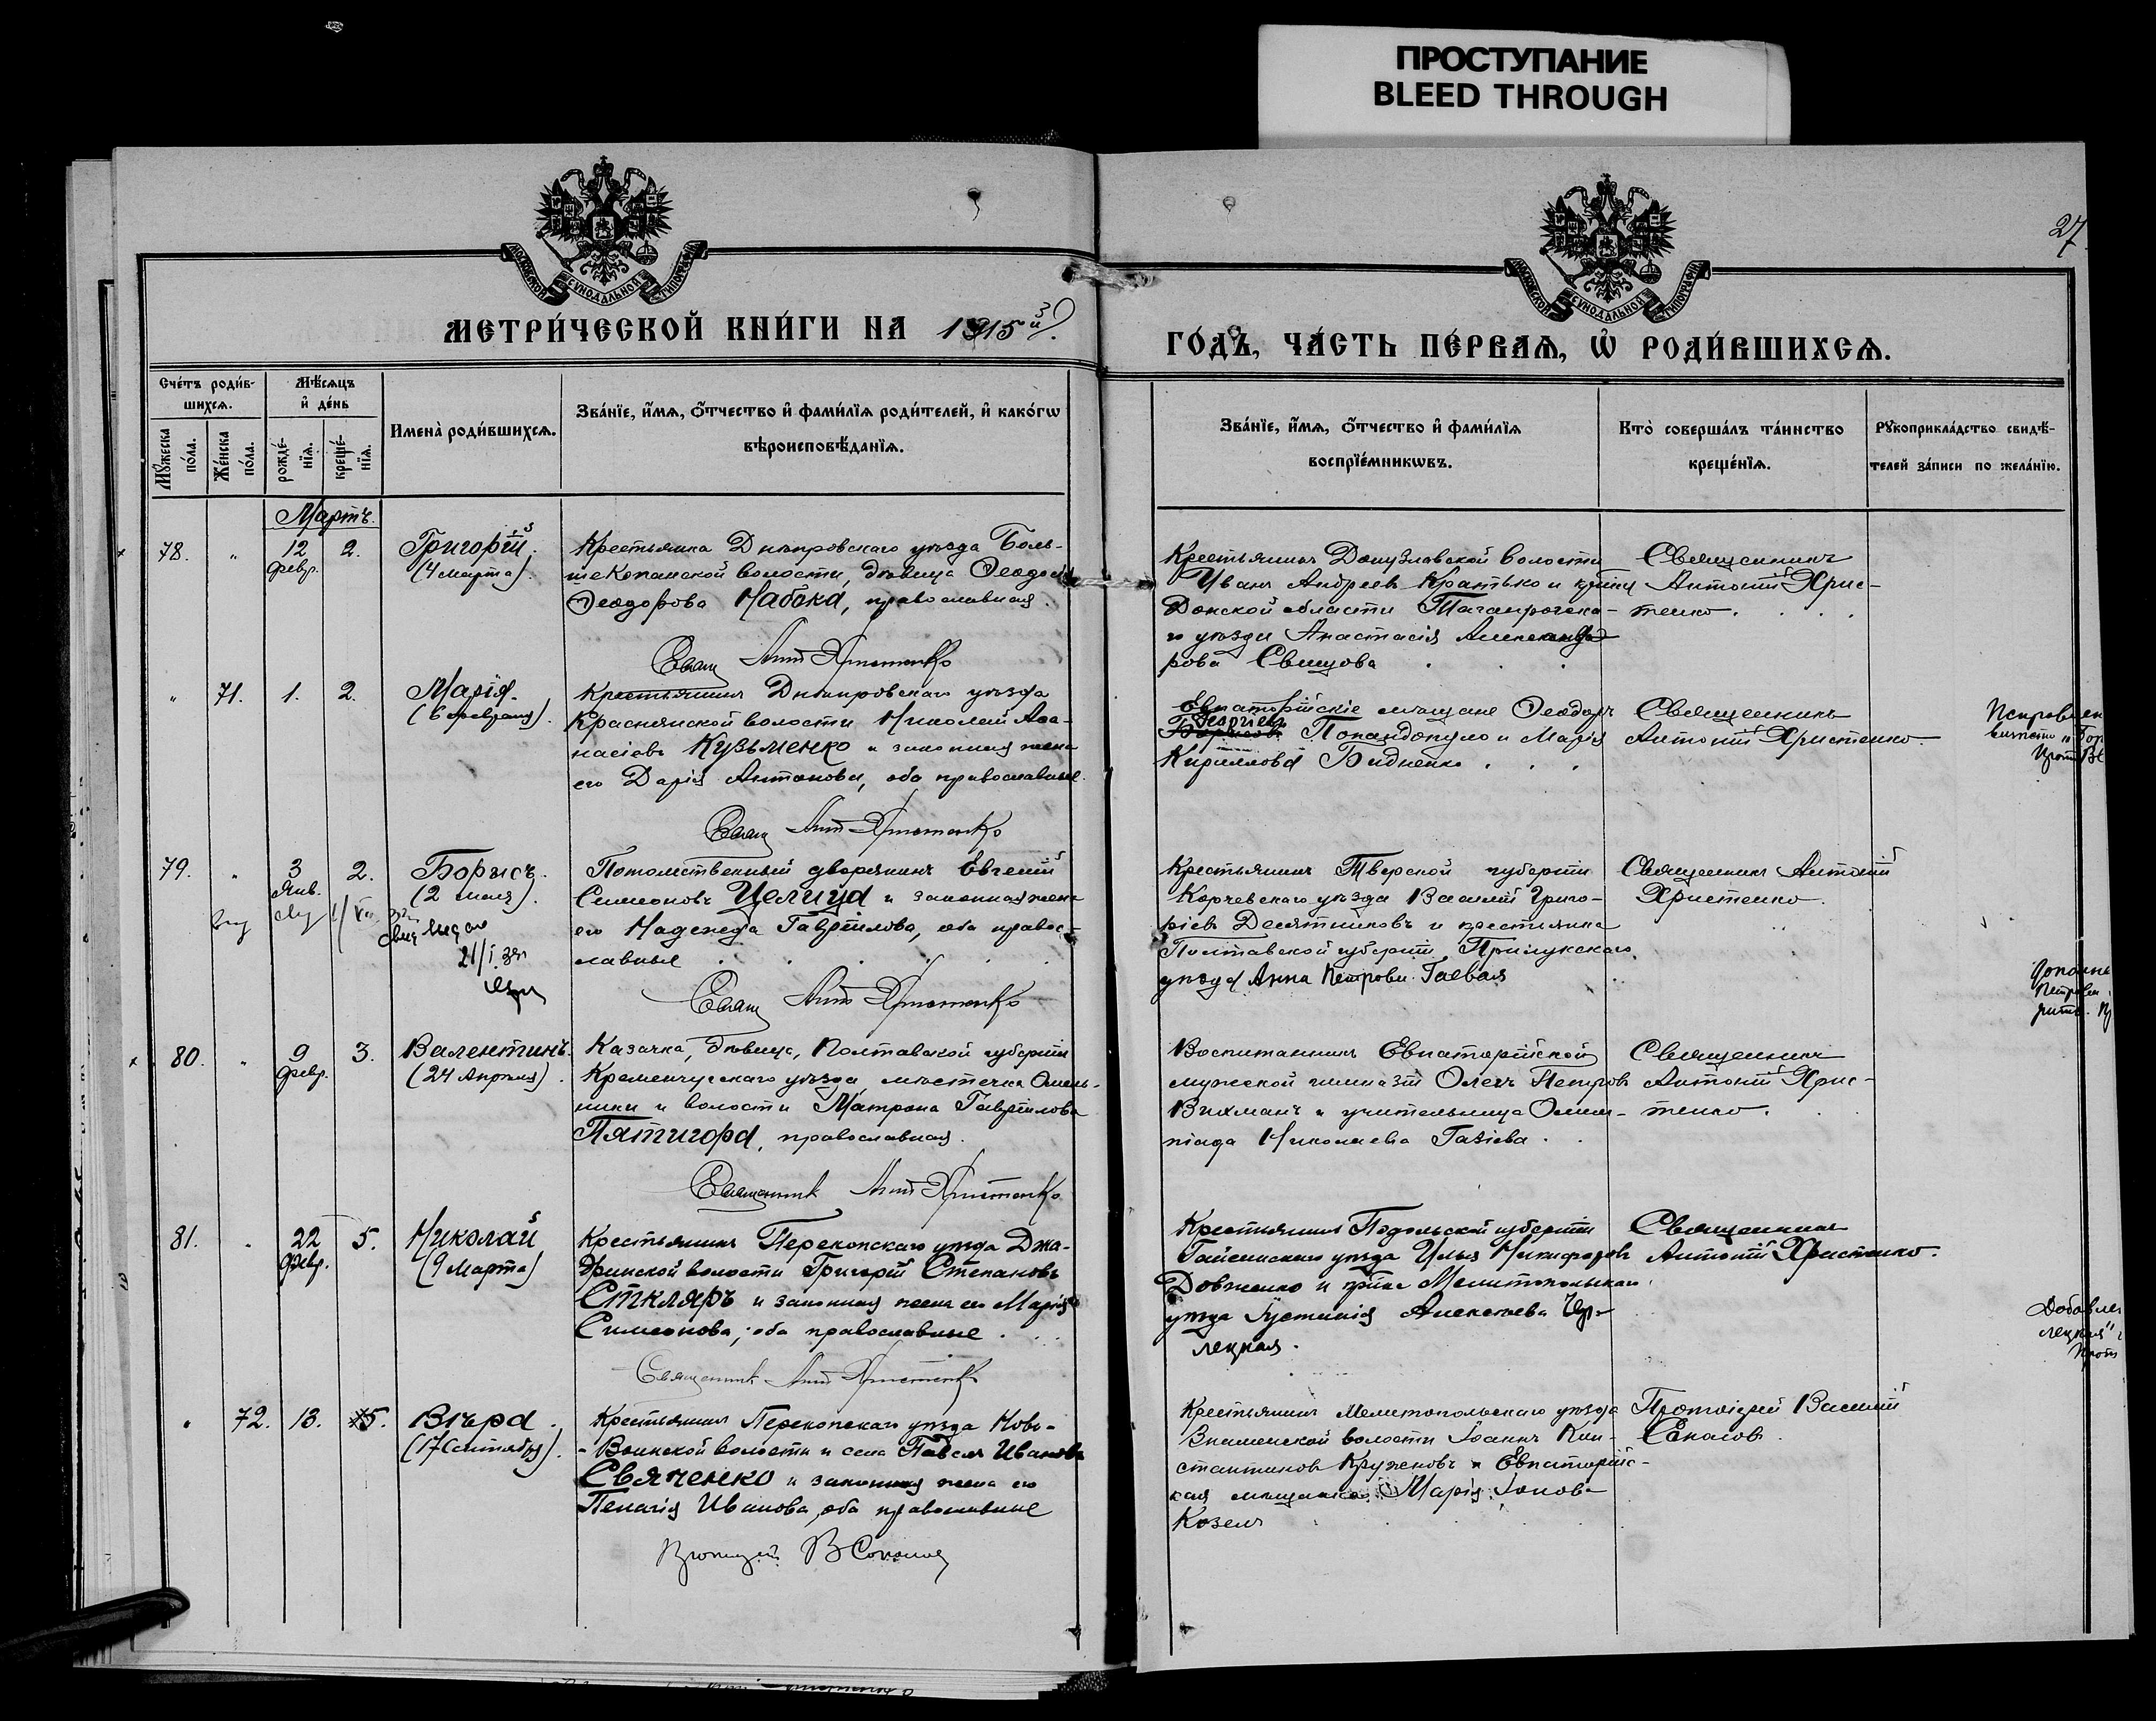 ПРОСТУПАНИЕ
BLEED THROUGH
27
МОСКОВСКОЙ СѴНОДАЛЬНОЙ ТИПОГРАФІИ
МОСКОВСКОЙ СѴНОДАЛЬНОЙ ТИПОГРАФІИ
МЕТРИ́ЧЕСКОЙ КНИ́ГИ НА 1915й
ГО́ДЪ, ЧА́СТЬ ПЕ́РВАѦ, Ѡ҆ РОДИ́ВШИХСѦ.
Сче́тъ роди́в-
шихсѧ.
Мꙋ́жеска
по́ла.
Же́нска
по́ла.
Мѣ́сѧцъ
и҆ де́нь
рожде́-
нїѧ.
креще́-
нїѧ.
Имена̀ роди́вшихсѧ.
Зва́нїе, и҆́мѧ, ѻ҆́тчество и҆ фами́лїѧ роди́телей, и҆ како́гѡ
вѣроисповѣ́данїѧ.
Зва́нїе, и҆́мѧ, ѻ҆́тчество и҆ фами́лїѧ
воспрїе́мникѡвъ.
Кто̀ соверша́лъ та́инство
креще́нїѧ.
Рꙋкоприкла́дство свидѣ́-
телей за́писи по жела́нїю.
Мартъ.
78. " 12 февр. 2. Григорій.
(4 марта).
Крестьянка Днѣпровскаго уѣзда Боль-
шекопанской волости, дѣвица Ѳеодосія
Ѳеодорова Набока, православная.
Свящ Ант Христенко
Крестьянинъ Донузлавской волости
Иванъ Андреевъ Кратько и
Донской области Таганрогска-
го уѣзда Анастасія Александ-
рова Свищова
Священникъ
Антоній Хрис-
тенко.
" 71. 1. 2. Марія.
(6 февраля).
Крестьянинъ Днѣпровскаго уѣзда
Краснянской волости Николай Аѳа-
насіевъ Кузьменко и законная жена
его Дарія Антонова, оба православные.
Свящ Ант Христенко
Евпаторійскіе мѣщане Ѳеодоръ
Георгіевъ
Борисовъ Попандопуло и Марія
Кириллова Бидненко
Священникъ
Антоній Христенко.
79. " 3 Янв. 2. Борисъ.
(2 мая).
21/I
Потомственный дворянинъ Евгеній
Симеоновъ Целица и законная жена
его Надежда Гавріилова, оба правос-
лавные
Свящ Ант Христенко
Крестьянинъ Тверской губерніи
Корчевскаго уѣзда Василій Григо-
ріевъ Десятниковъ и крестьянка
Полтавской губерніи, Прилукскаго
уѣзда Анна Петрова Гаевая
Священникъ Антоній
Христенко.
80. " 9 февр. 3. Валентинъ.
(24 Апрѣля).
Казачка, дѣвица, Полтавской губерніи
Кременчугскаго уѣзда, мѣстечка Омель-
ники и волости Матрона Гавріилова
Пятигора, православная.
Священник Ант Христенко
Воспитанникъ Евпаторійской
мужской гимназіи Олегъ Петровъ
Вихманъ и учительница Олим-
піада Николаева Газіева.
Священникъ
Антоній Хрис-
тенко.
81. " 22 февр. 5. Николай
(9 Марта)
Крестьянинъ Перекопскаго уѣзда Джа-
финской волости Григорій Степановъ
Сткляръ и законная жена его Марія
Симеонова, оба православные.
Священник Ант Христенко
Крестьянинъ Подольской губерніи
Гайсинскаго уѣзда Илья Никифоровъ
Довженко и Мелитопольскаго
уѣзда Іустинія Алексѣева
лецкая.
Священникъ
Антоній Христенко.
" 72. 13. 5. Вѣра.
(17 Сентября).
Крестьянинъ Перекопскаго уѣзда Ново-
-Воинской волости и села Павелъ Ивановъ
Святенко и законная жена его
Пелагія Иванова, оба православные
Крестьянинъ Мелитопольскаго уѣзда
Знаменской волости Іоаннъ Кон-
стантиновъ Круженовъ и Евпаторійс-
кая мѣщанка Марія Іонова
Козелъ
Протоіерей Василій